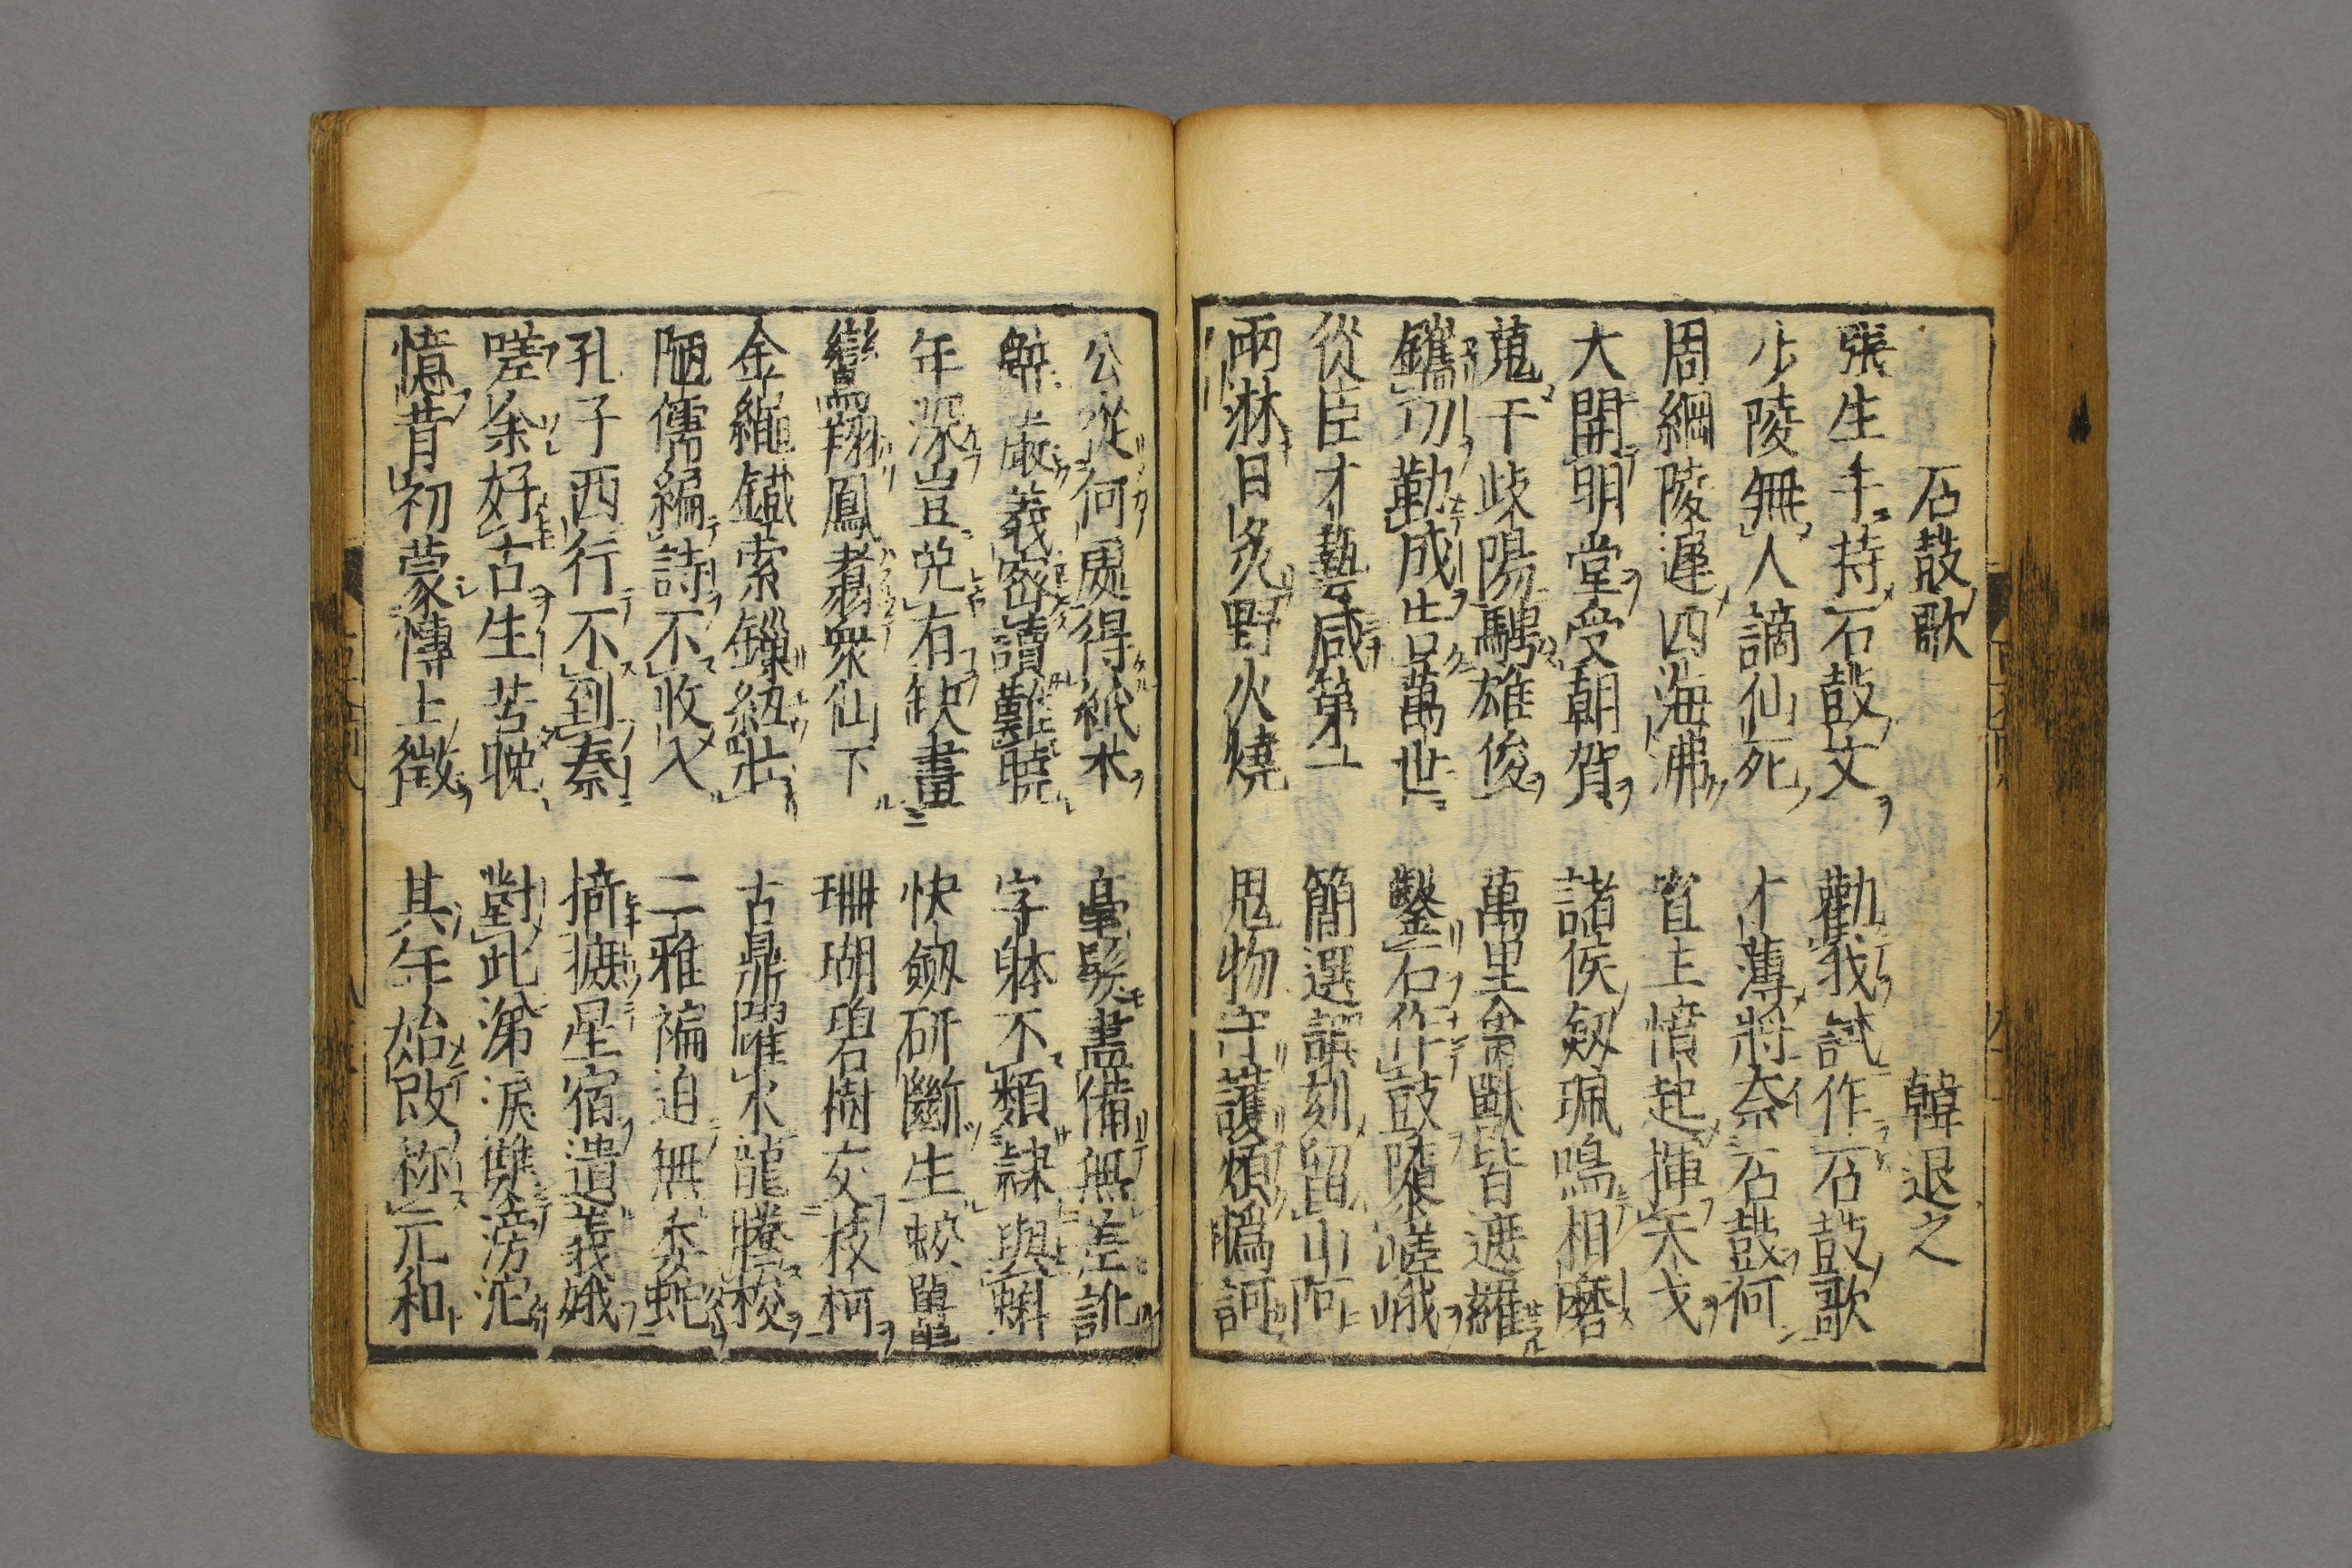 石鼓歌 韓退之
張生手持石鼓文 勸我試作石鼓歌
少陵無人謫仙死 才薄將奈石鼓何
周綱陵遲四海沸 宣王憤起揮天戈
大開明堂受朝賀 諸侯劔珮鳴相磨
蒐于岐陽騁雄俊 萬里禽獸皆遮羅
鐫功勒成告萬世 鑿石作鼓隳嵯峨
從臣才藝咸第一 簡選譔刻留山阿
雨淋日炙野火燒 鬼物守護煩撝訶
公從何處得紙本 毫髮盡備無差訛
辭嚴義密讀難曉 字體不類隷與蝌
年深豈免有缺畫 快劔斫斷生蛟鼉
鸞翔鳳翥衆仙下 珊瑚碧樹交枝柯
金繩鐵索鏁紐壯 古鼎躍水龍騰梭
陋儒編詩不收入 二雅褊迫無委蛇
孔子西行不到秦 掎摭星宿遺羲娥
嗟余好古生苦晩 對此涕淚雙滂沱
憶昔初蒙博士徵 其年始改稱元和